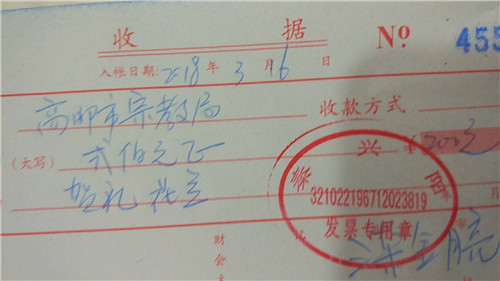 收 据 Nº 455
入帐日期：2018年3月16日
高邮市宗教局 收款方式
(大写) 弍佰元正 ¥200元
兴 阳
321022196712023819
贺礼
发票专用章
财会